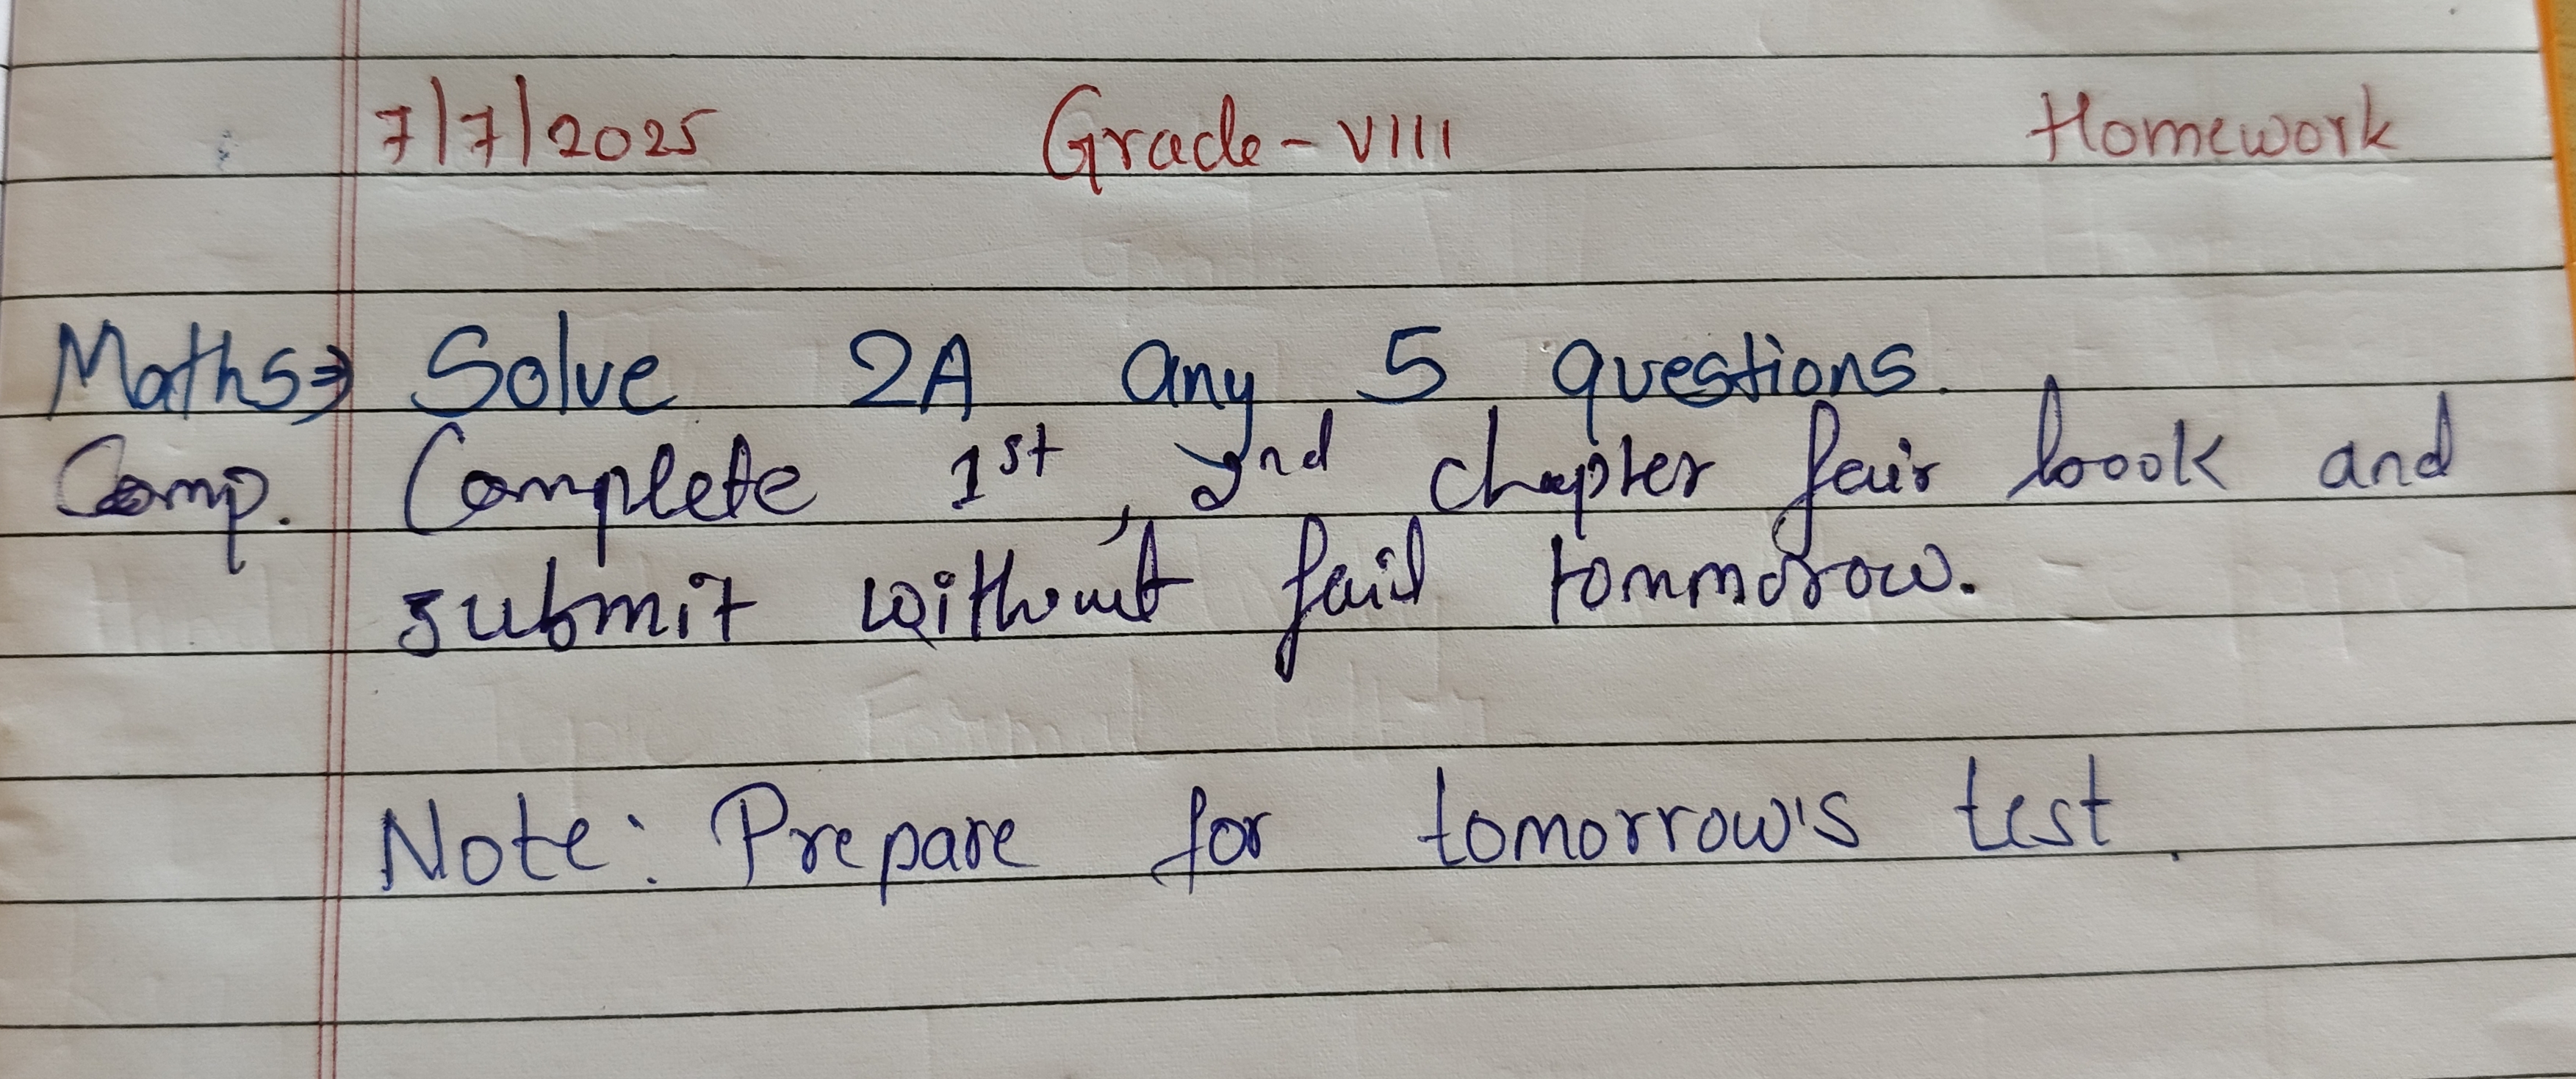 7/7/2025 Grade - VIII Homework
Maths⇒ Solve 2A any 5 questions.
Comp. Complete 1st, 2nd chapter fair book and
submit without fail tommorow.
Note: Prepare for tomorrow's test.